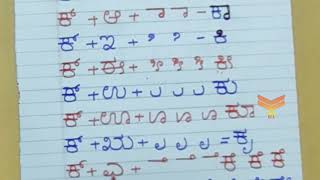 ಕ್ + ಆ + ಾ ಾ - ಕಾ
ಕ್ + ಇ + ಿ ಿ - ಕಿ
ಕ್ + ಈ + ೀ ೀ ೀ ಕೀ
ಕ್ + ಉ + ು ು ು ಕು
ಕ್ + ಊ + ೂ ೂ ೂ ಕೂ
ಕ್ + ಋ + ೃ ೃ ೃ = ಕೃ
ಕ್ + ಎ + ೆ ೆ ೆ ಕೆ ಕೆ ಕೆ